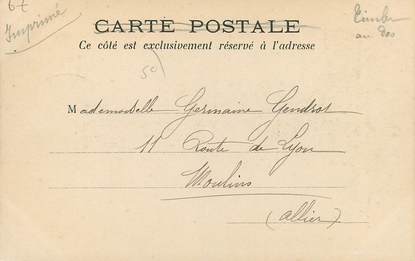 67
Imprimé
CARTE POSTALE
Timbre
au dos
Ce côté est exclusivement réservé à l'adresse
50
Mademoiselle Germaine Gendrot
11 Route de Lyon
Moulins
(Allier)